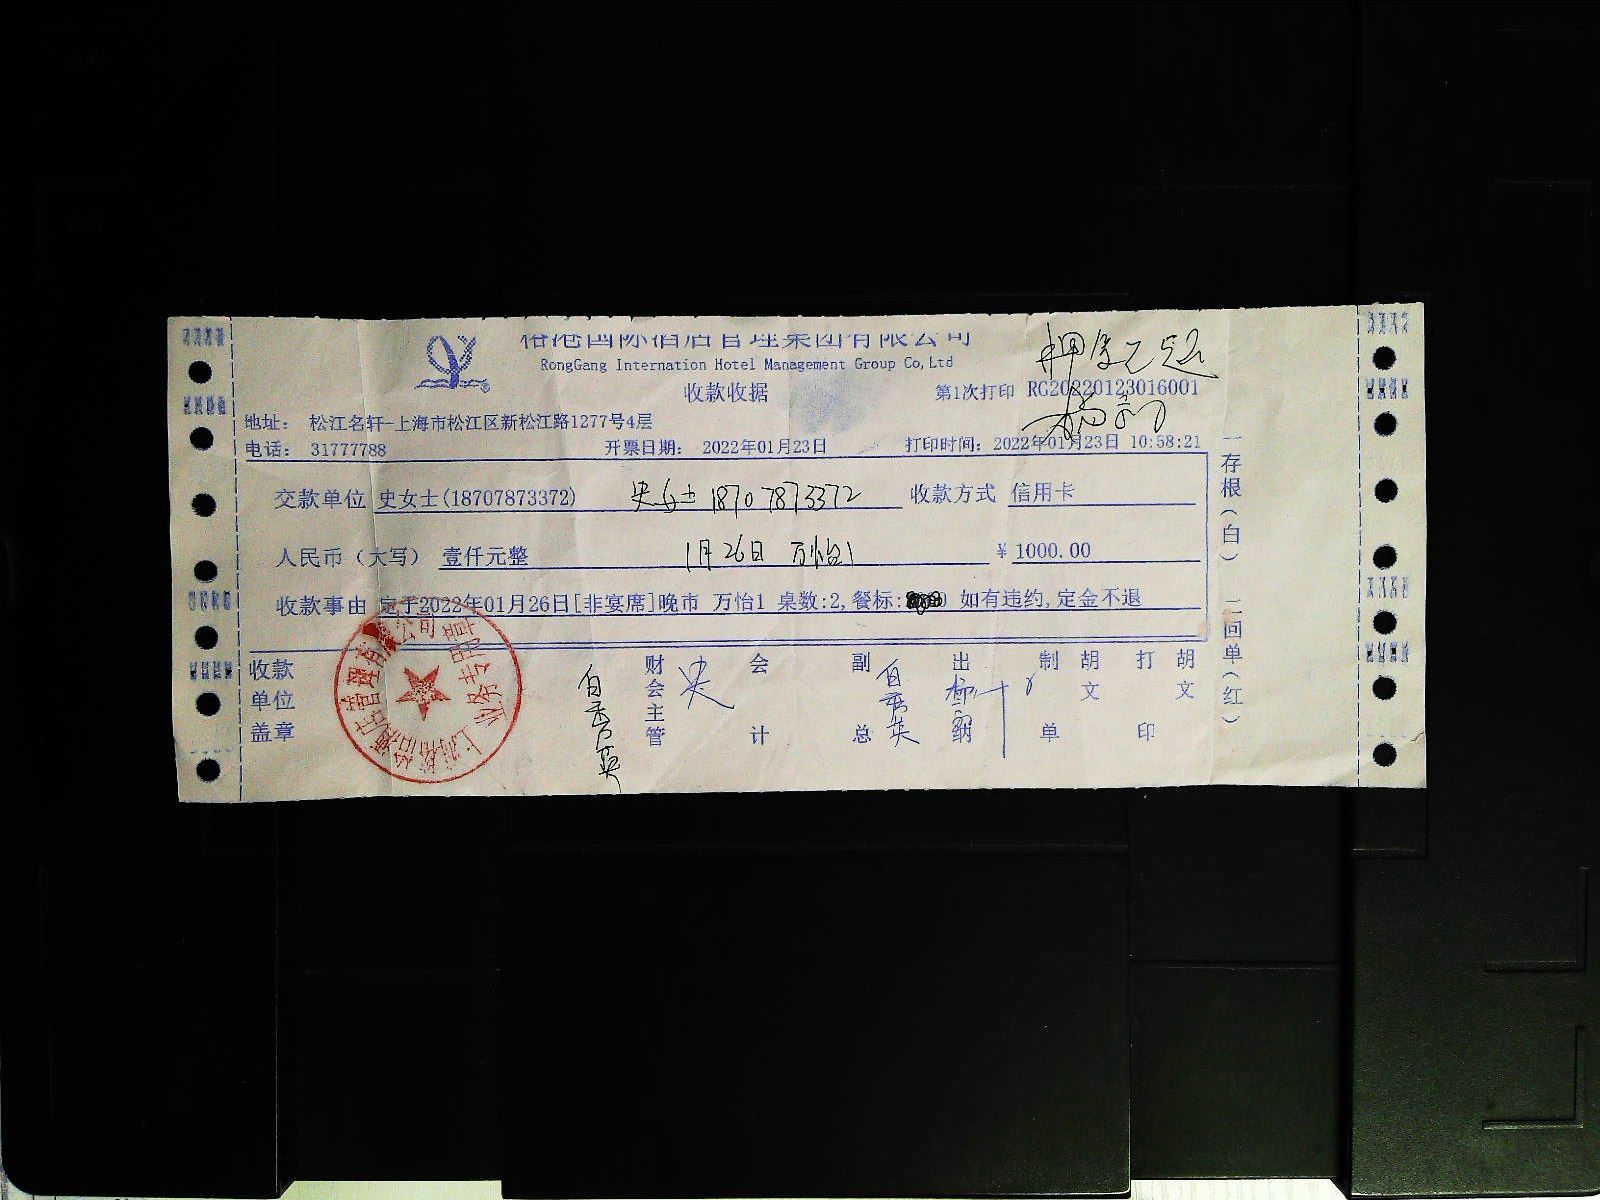 国际酒店管理集团有限公司
RongGang Internation Hotel Management Group Co,Ltd
收款收据
第1次打印 RG20220123016001
地址： 松江名轩-上海市松江区新松江路1277号4层
电话： 31777788 开票日期： 2022年01月23日 打印时间： 2022年01月23日 10:58:21
交款单位 史女士(18707873372) 史女士 18707873372 收款方式 信用卡
人民币（大写） 壹仟元整 1月26日 万怡1 ￥1000.00
收款事由 定于2022年01月26日[非宴席]晚市 万怡1 桌数:2,餐标: 如有违约,定金不退
收款单位盖章 财会主管 会计 副总 出纳 制单 胡文 打印 胡文
一存根（白） 二回单（红）
业务专用章